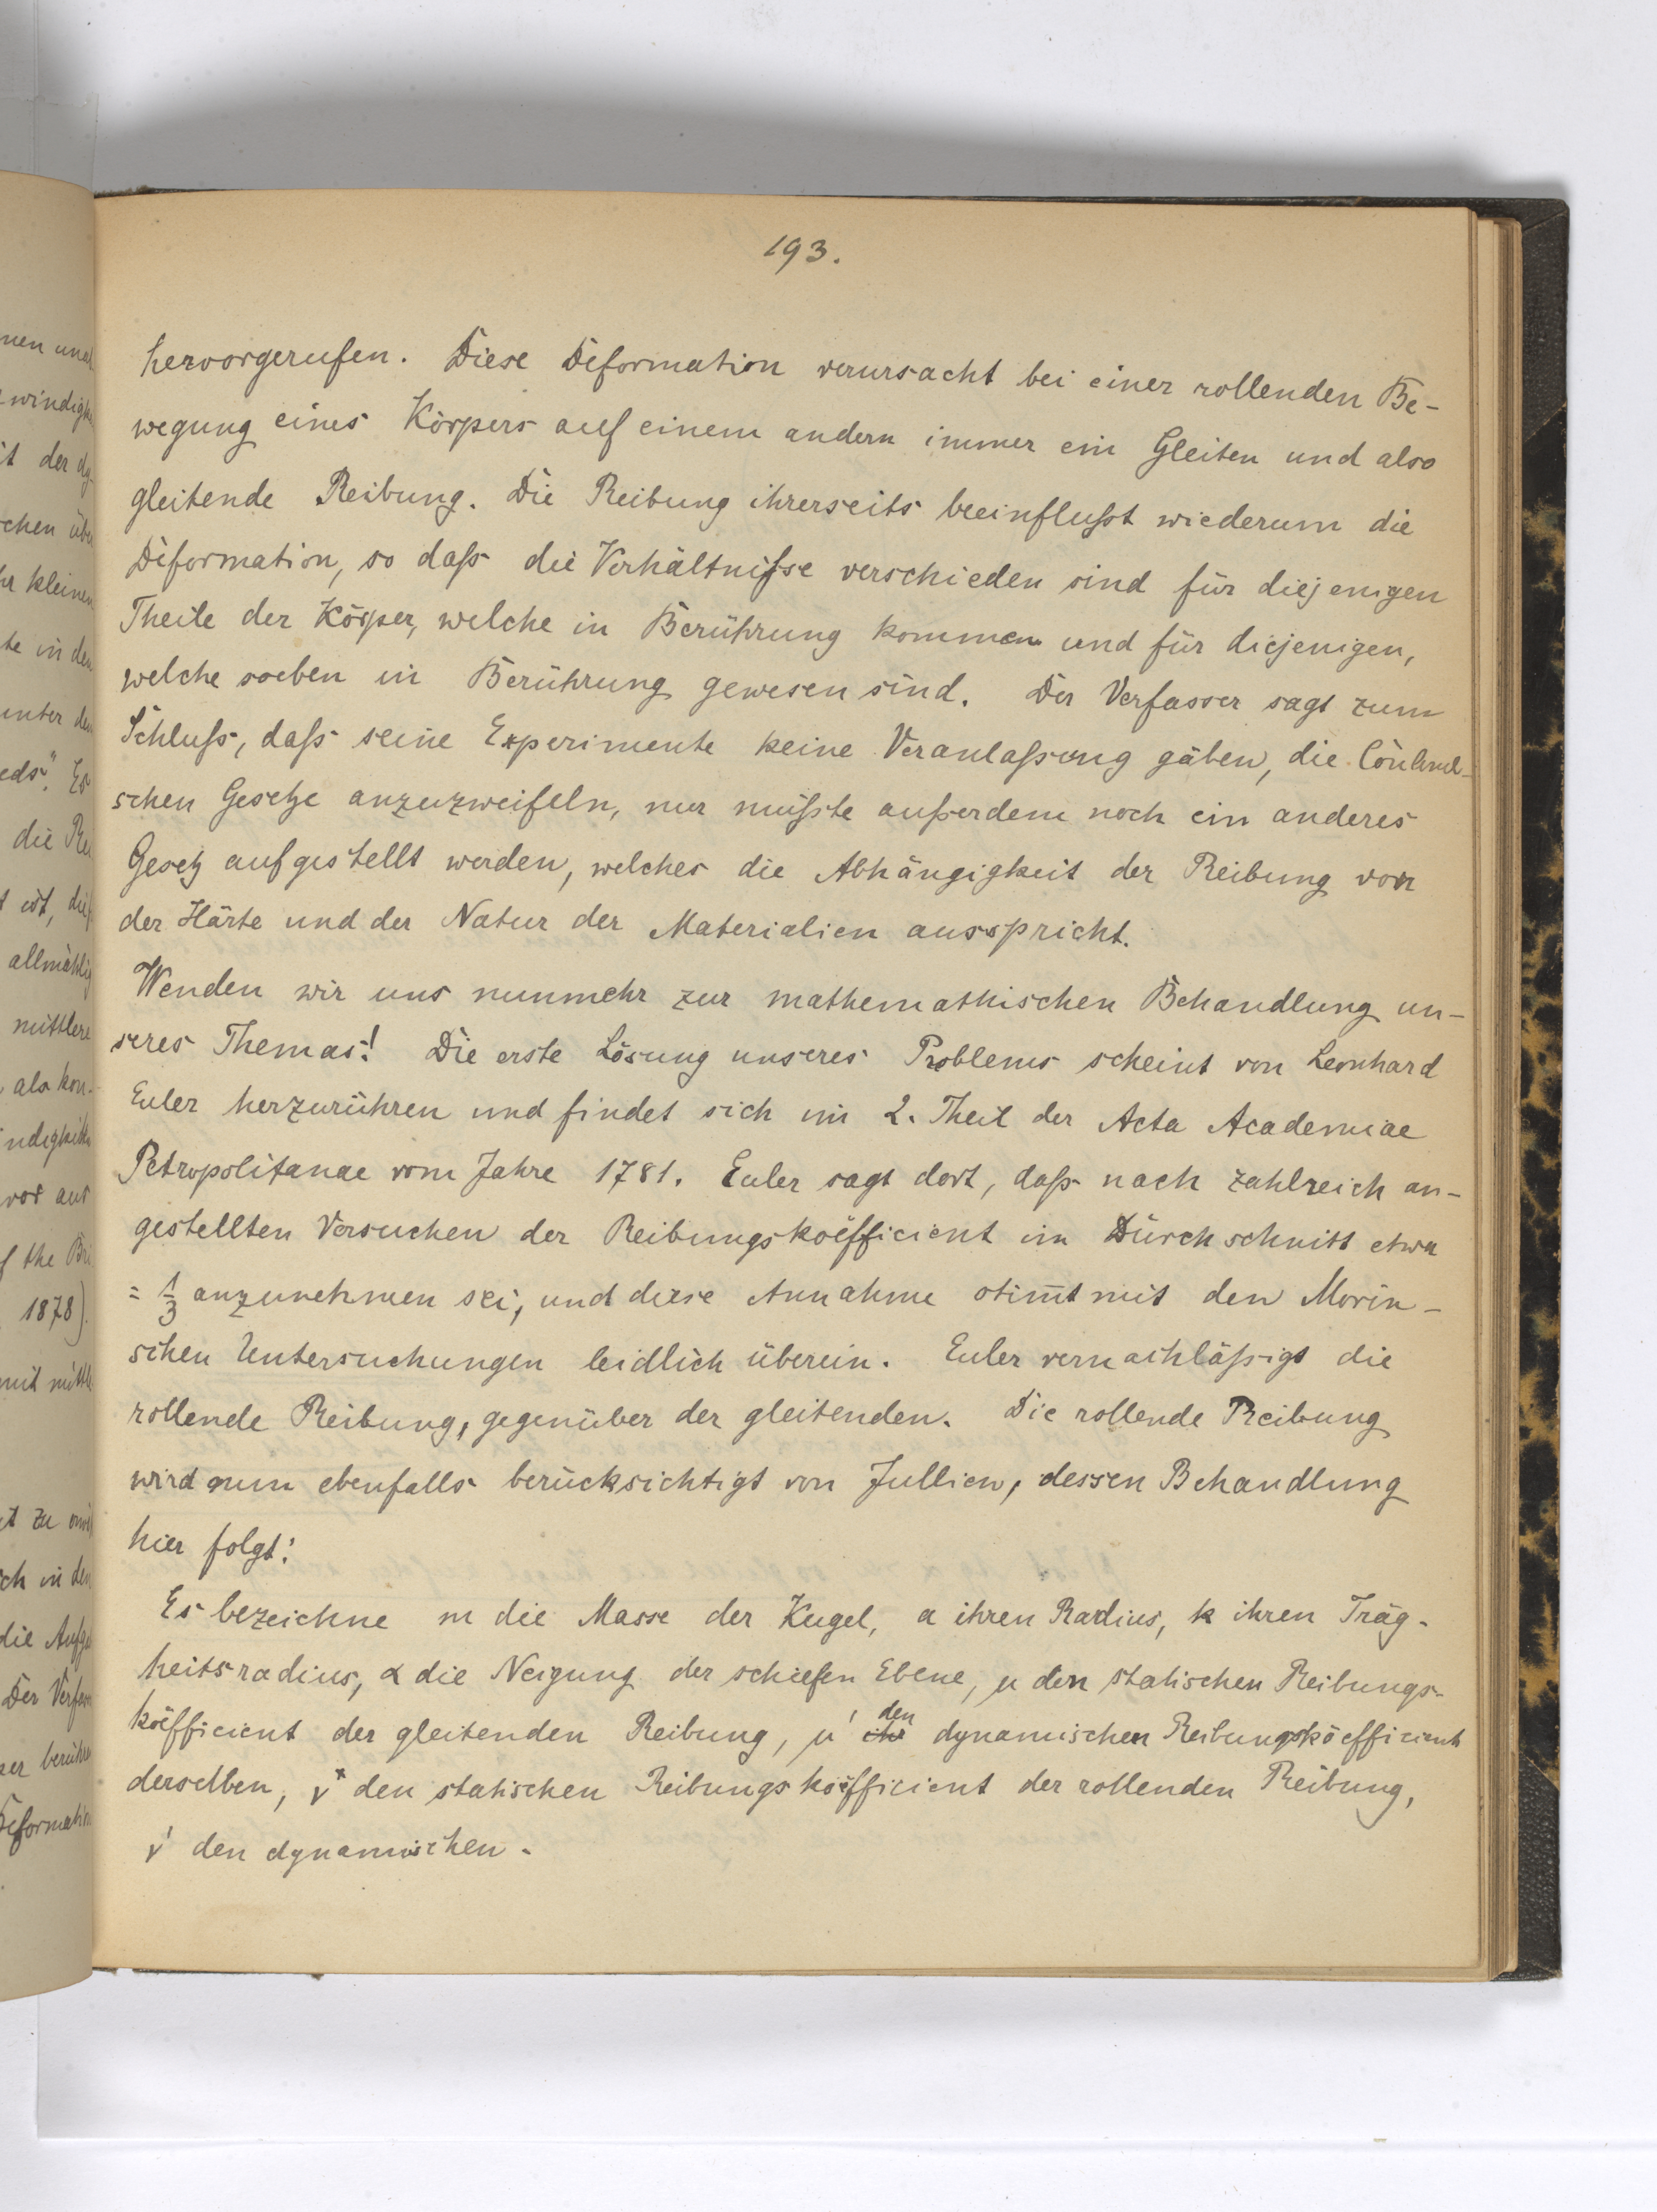 193.
hervorgerufen. Diese Deformation verursacht bei einer rollenden Be-
wegung eines Körpers auf einem andern immer ein Gleiten und also
gleitende Reibung. Die Reibung ihrerseits beeinflußt wiederum die
Deformation, so daß die Verhältniße verschieden sind für diejenigen
Theile der Körper, welche in Berührung kommen und für diejenigen,
welche soeben in Berührung gewesen sind. Der Verfasser sagt zum
Schluß, daß seine Experimente keine Veranlaßung gäben, die
schen Gesetze anzuzweifeln, nur müßte außerdem noch ein anderes
Gesetz aufgestellt werden, welches die Abhängigkeit der Reibung von
der Härte und der Natur der Materialien ausspricht.
Wenden wir uns nunmehr zur mathemathischen Behandlung un-
seres Themas! Die erste Lösung unseres Problems scheint von Leonhard
Euler herzurühren und findet sich im 2. Theil der Acta Academiae
Petropolitanae vom Jahre 1781. Euler sagt dort, daß nach zahlreich an-
gestellten Versuchen der Reibungskoëfficient im Durchschnitt etwa
= 1/3 anzunehmen sei, und diese Annahme stim̅t mit den Morin-
schen Untersuchungen leidlich überein. Euler vernachläßigt die
rollende Reibung, gegenüber der gleitenden. Die rollende Reibung
wird nun ebenfalls berücksichtigt von Jullien, dessen Behandlung
hier folgt:
Es bezeichne m die Masse der Kugel, a ihren Radius, k ihren Träg-
heitsradius, α die Neigung der schiefen Ebene, μ den statischen Reibungs-
koëfficient der gleitenden Reibung, μ' den dynamischen Reibungskoëfficient
derselben, ν* den statischen Reibungskoëfficient der rollenden Reibung,
ν' den dynamischen.